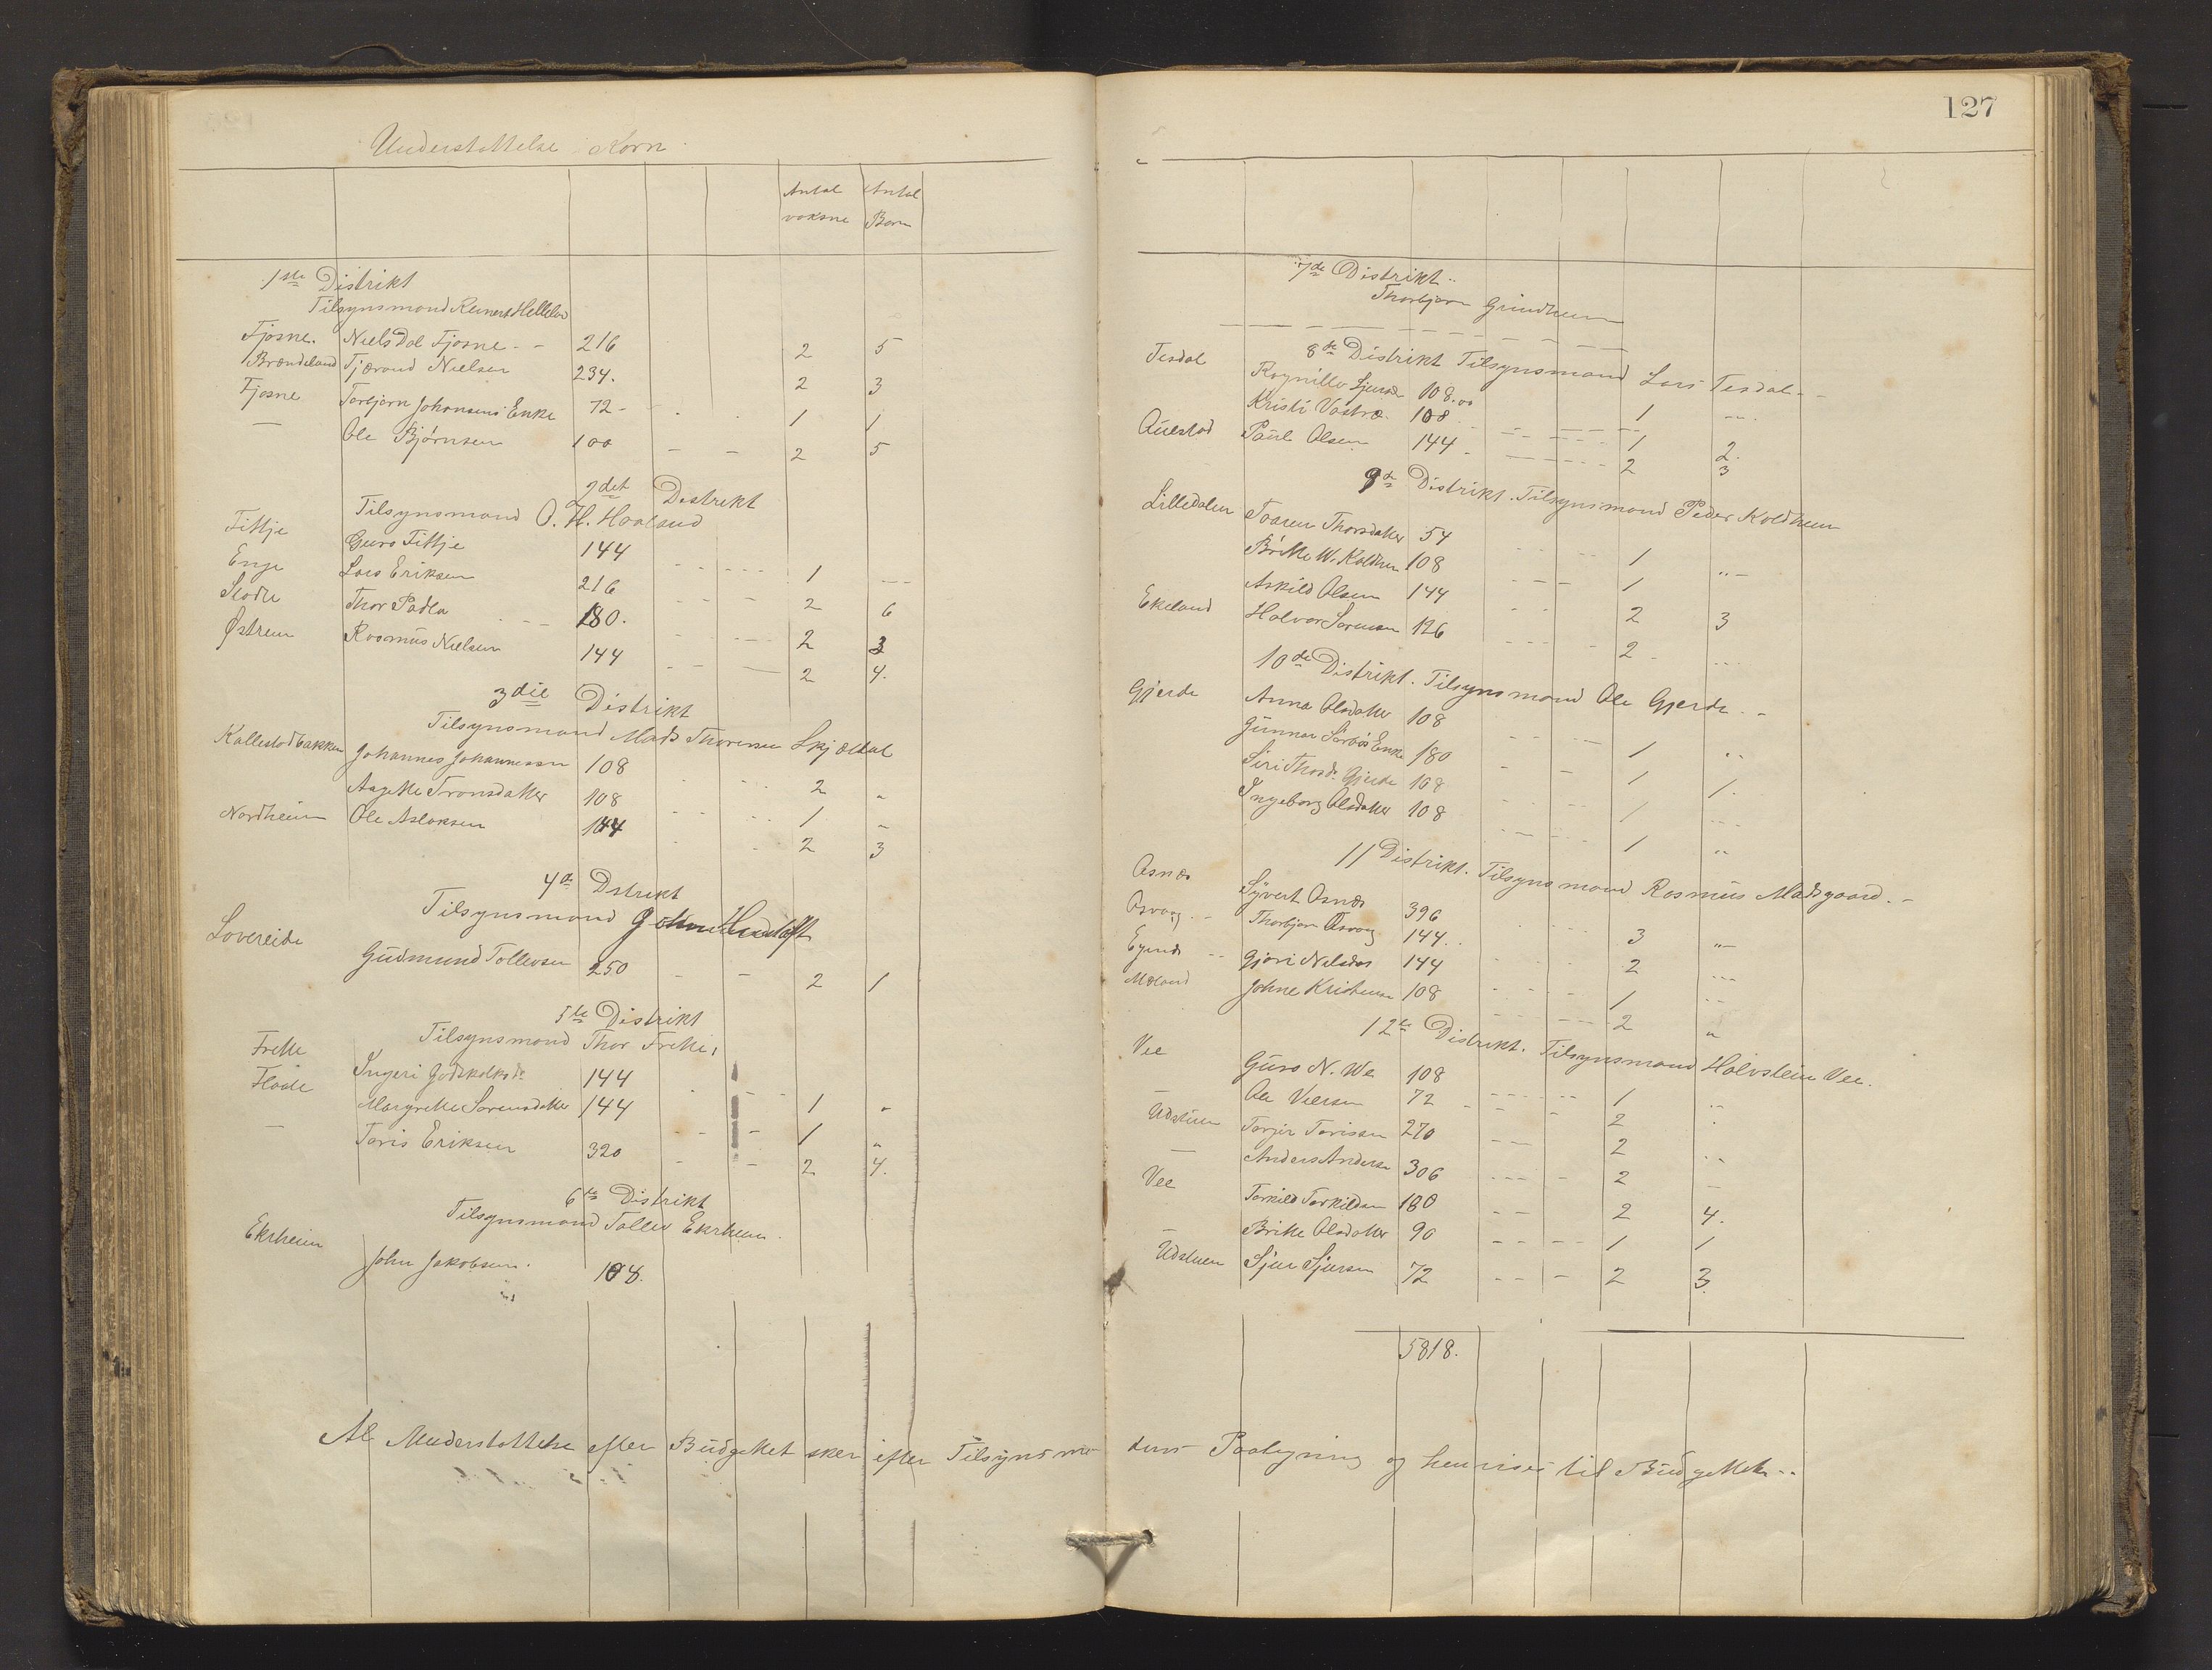 Understøttelse Korn
Antal voksne Antal Børn
1ste Distrikt
Tilsynsmand Reinert Helleland
Fjøsne. Niels Dal Fjøsne - - 216 2 5
Brændeland Tjerand Nielsen 234. 2 3
Fjøsne Torbjørn Johansens Enke 72 - 1 1
— Ole Bjørnsen 100 - - 2 5
2det Distrikt
Tilsynsmand O. H. Haaland
Fittje Guro Fittje 144 1 --
Enge Lars Eriksen 216 2 6
Slaatte Thor Padla 180. 2 3
Østrem Rasmus Nielsen 144 2 4.
3die Distrikt
Tilsynsmand Mads Thoresen Skjældal
Kallestadbakken Johannes Johannessen 108 2 "
Aagathe Tronsdatter 108 1 "
Nordheim Ole Aslaksen 144 2 3
4de Dstrikt
Tilsynsmand
Løvereide Gudmund Tollevsen 250 - - 2 1
5te Distrikt
Tilsynsmand Thor Frette,
Frette Ingeri Godskalksd. 144 1 "
Flaate Margrethe Sørensdatter 144 1 "
— Toris Eriksen 320 2 4.
6te Distrikt
Tilsynsmand Tollev Ekrheim.
Ekrheim John Jakobsen. 108.
Al Understøttelse efter Budgettet sker efter Tilsynsmæ
127
7de Distrikt..
Thorbjørn Grindheim
8de Distrikt Tilsynsmand Lars Tesdal --
Tesdal Ragnilla Sjursd. 108.00 1 --
Kristi Vastra 108 1 2.
Questad Paul Olsen 144 - 2 3
9de Distrikt. Tilsynsmand Peder Koldheim
Lilledalen Taaren Thorsdatter 54 1 "-
Britte W. Koldheim 108 1
Askild Olsen 144 2 3
Ekeland Halvor Sørensen 126 2 - ---
10de Distrikt. Tilsynsmand Ole Gjerde. -
Gjerde Anna Olsdatter 108 1 "
Gunnar Sørbøs Enke 180 1 1.
Siri Thorsd. Gjerde 108 1 ---
Ingeborg Olsdatter 108 1 "
11 Distrikt. Tilsynsmand Rasmus Madsgaard. -
Osnæs Syvert Osnæs 396 3 "-
Osvaag -- Thorbjørn Osvaag 144.. 2 ---
Eginds -- Gjøri Nelsdat 144 1 --
Møland Johne Kristensen 108 2 "
12te Distrikt. Tilsynsmand Halvstein Vee.
Vee Guro N. We 108 1 --
Ole Veersen 72 2 .
Udstuen Torgir Torissen 270 2 --
— Anders Andersen 306 2 --
Vee Torkild Torkildsen 180 2 4.
Britte Olsdatter 90 1 1
Udstuen Sjur Sjursen 72 2 3.
5818.
dens Paategning og henvises til Budgettet..